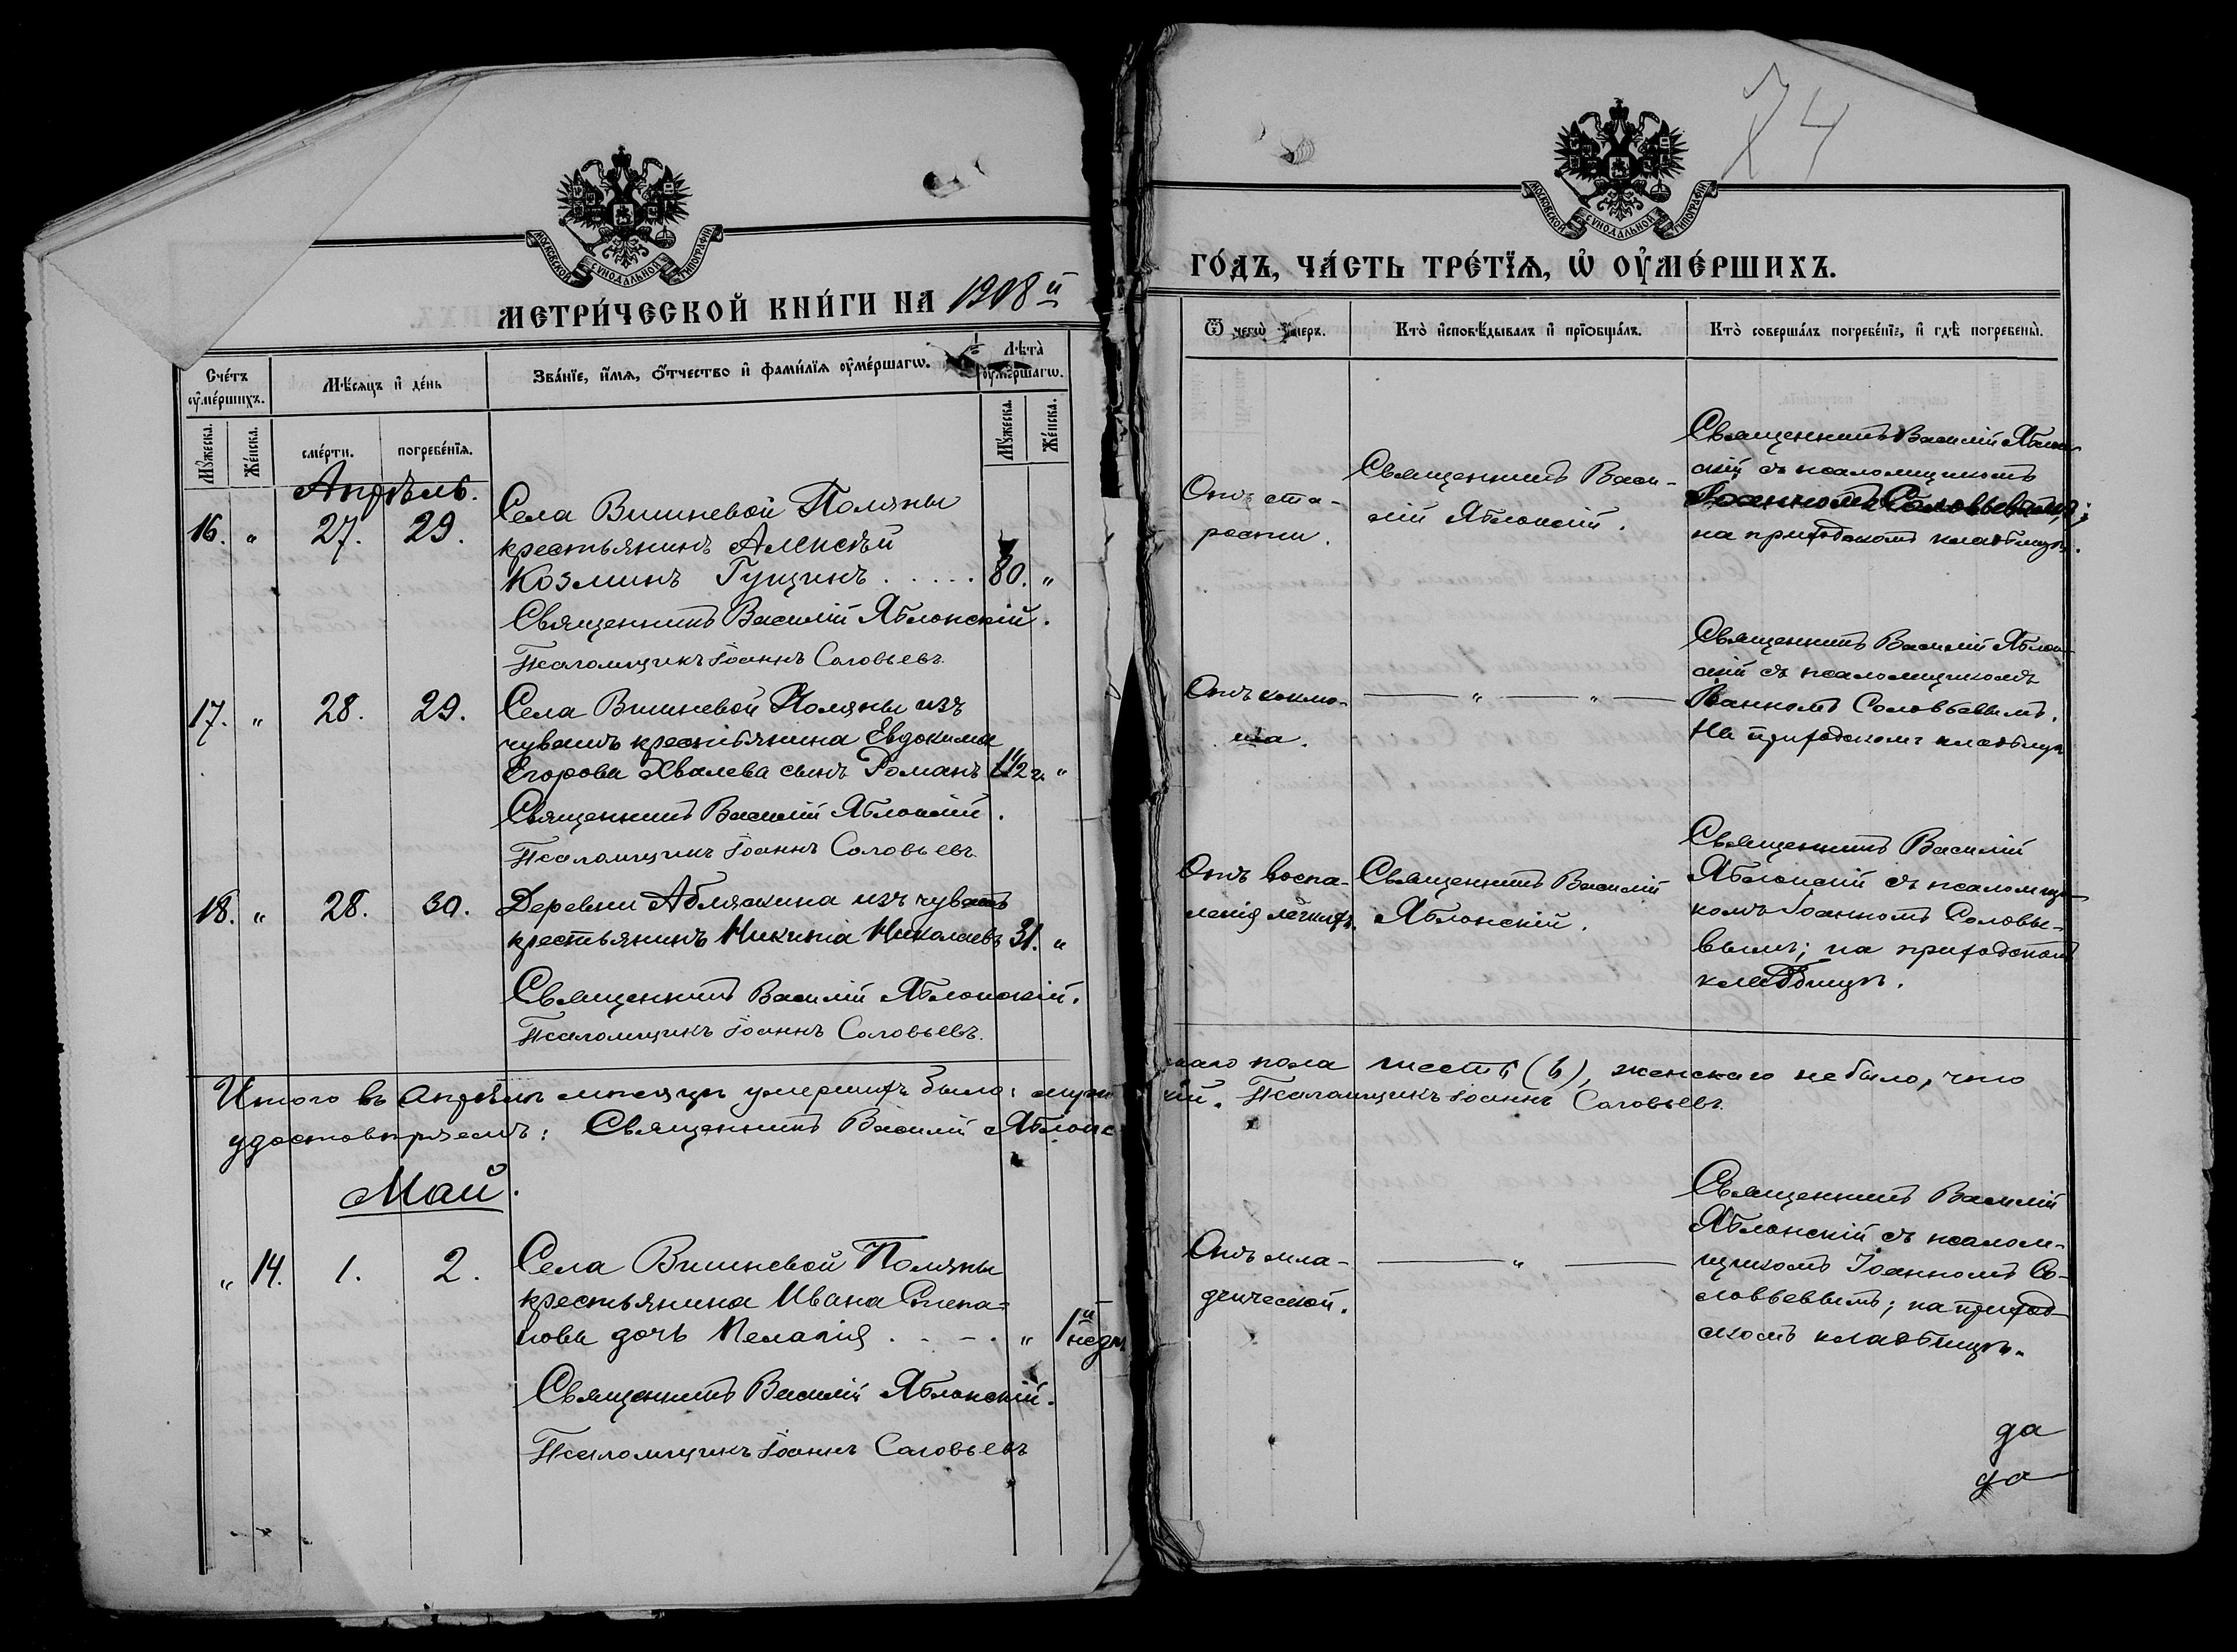 74
МОСКОВСКОЙ СѴНОДАЛЬНОЙ ТИПОГРАФІИ
МЕТРИ́ЧЕСКОЙ КНИ́ГИ НА 1908й
Сче́тъ ᲂу҆ме́ршихъ.
Мѣ́сяцъ и҆ де́нь
Зва́нїе, и҆́мя, ѻ҆́тчество и҆ фами́лїя ᲂу҆ме́ршагѡ.
Лѣта̀ ᲂу҆ме́ршагѡ.
Мꙋ́жеска.
Же́нска.
сме́рти.
погребе́нїя.
Мꙋ́жеска.
Же́нска.
Апрѣль.
16. „ 27. 29. Села Вишневой Поляны
крестьянинъ Алексѣй
Козминъ Гущинъ . . . . . 80. „
Священникъ Василій Яблонскій.
Псаломщикъ Іоаннъ Соловьевъ.
17. „ 28. 29. Села Вишневой Поляны изъ
чувашъ крестьянина Евдокима
Егорова Хвалева сынъ Романъ 1½ г. „
Священникъ Василій Яблонскій.
Псаломщикъ Іоаннъ Соловьевъ
18. „ 28. 30. Деревни Абляскина изъ чувашъ
крестьянинъ Никита Николаевъ 31. „
Священникъ Василій Яблонскій.
Псаломщикъ Іоаннъ Соловьевъ.
Итого въ Апрѣлѣ мѣсяцѣ умершихъ было: муж
удостовѣряемъ: Священникъ Василій Яблонс
Май.
„ 14. 1. 2. Села Вишневой Поляны
крестьянина Ивана Степа=
нова дочь Пелагія . . - . „ 1 недѣл
Священникъ Василій Яблонскій.
Псаломщикъ Іоаннъ Соловьевъ
МОСКОВСКОЙ СѴНОДАЛЬНОЙ ТИПОГРАФІИ
ГО́ДЪ, ЧА́СТЬ ТРЕ́ТЇЯ, Ѡ҆ ОУ҆МЕ́РШИХЪ.
Ѿ чегѡ̀ ᲂу҆́меръ.
Кто̀ и҆сповѣ́дывалъ и҆ прїѻбща́лъ.
Кто̀ соверша́лъ погребе́нїе, и҆ гдѣ̀ погребены̀.
Отъ ста-
рости.
Священникъ Васи-
лій Яблонскій.
Священникъ Василій Яблон-
скій съ псаломщикомъ
Іоанномъ Соловьевымъ;
на приходскомъ кладбищѣ.
Отъ коклю-
ша.
— „ — „ —
Священникъ Василій Яблон-
скій съ псаломщикомъ
Іоанномъ Соловьевымъ.
На приходскомъ кладбищѣ
Отъ воспа-
ленія легкихъ.
Священникъ Василій
Яблонскій.
Священникъ Василій
Яблонскій съ псаломщи-
комъ Іоанномъ Соловье-
вымъ; на приходскомъ
кладбищѣ.
скаго пола шесть (6), женскаго не было, что
кій. Псаломщикъ Іоаннъ Соловьевъ.
Отъ мла-
денческой.
— „ —
Священникъ Василій
Яблонскій съ псалом-
щикомъ Іоанномъ Со-
ловьевымъ; на приход-
скомъ кладбищѣ.
да
да